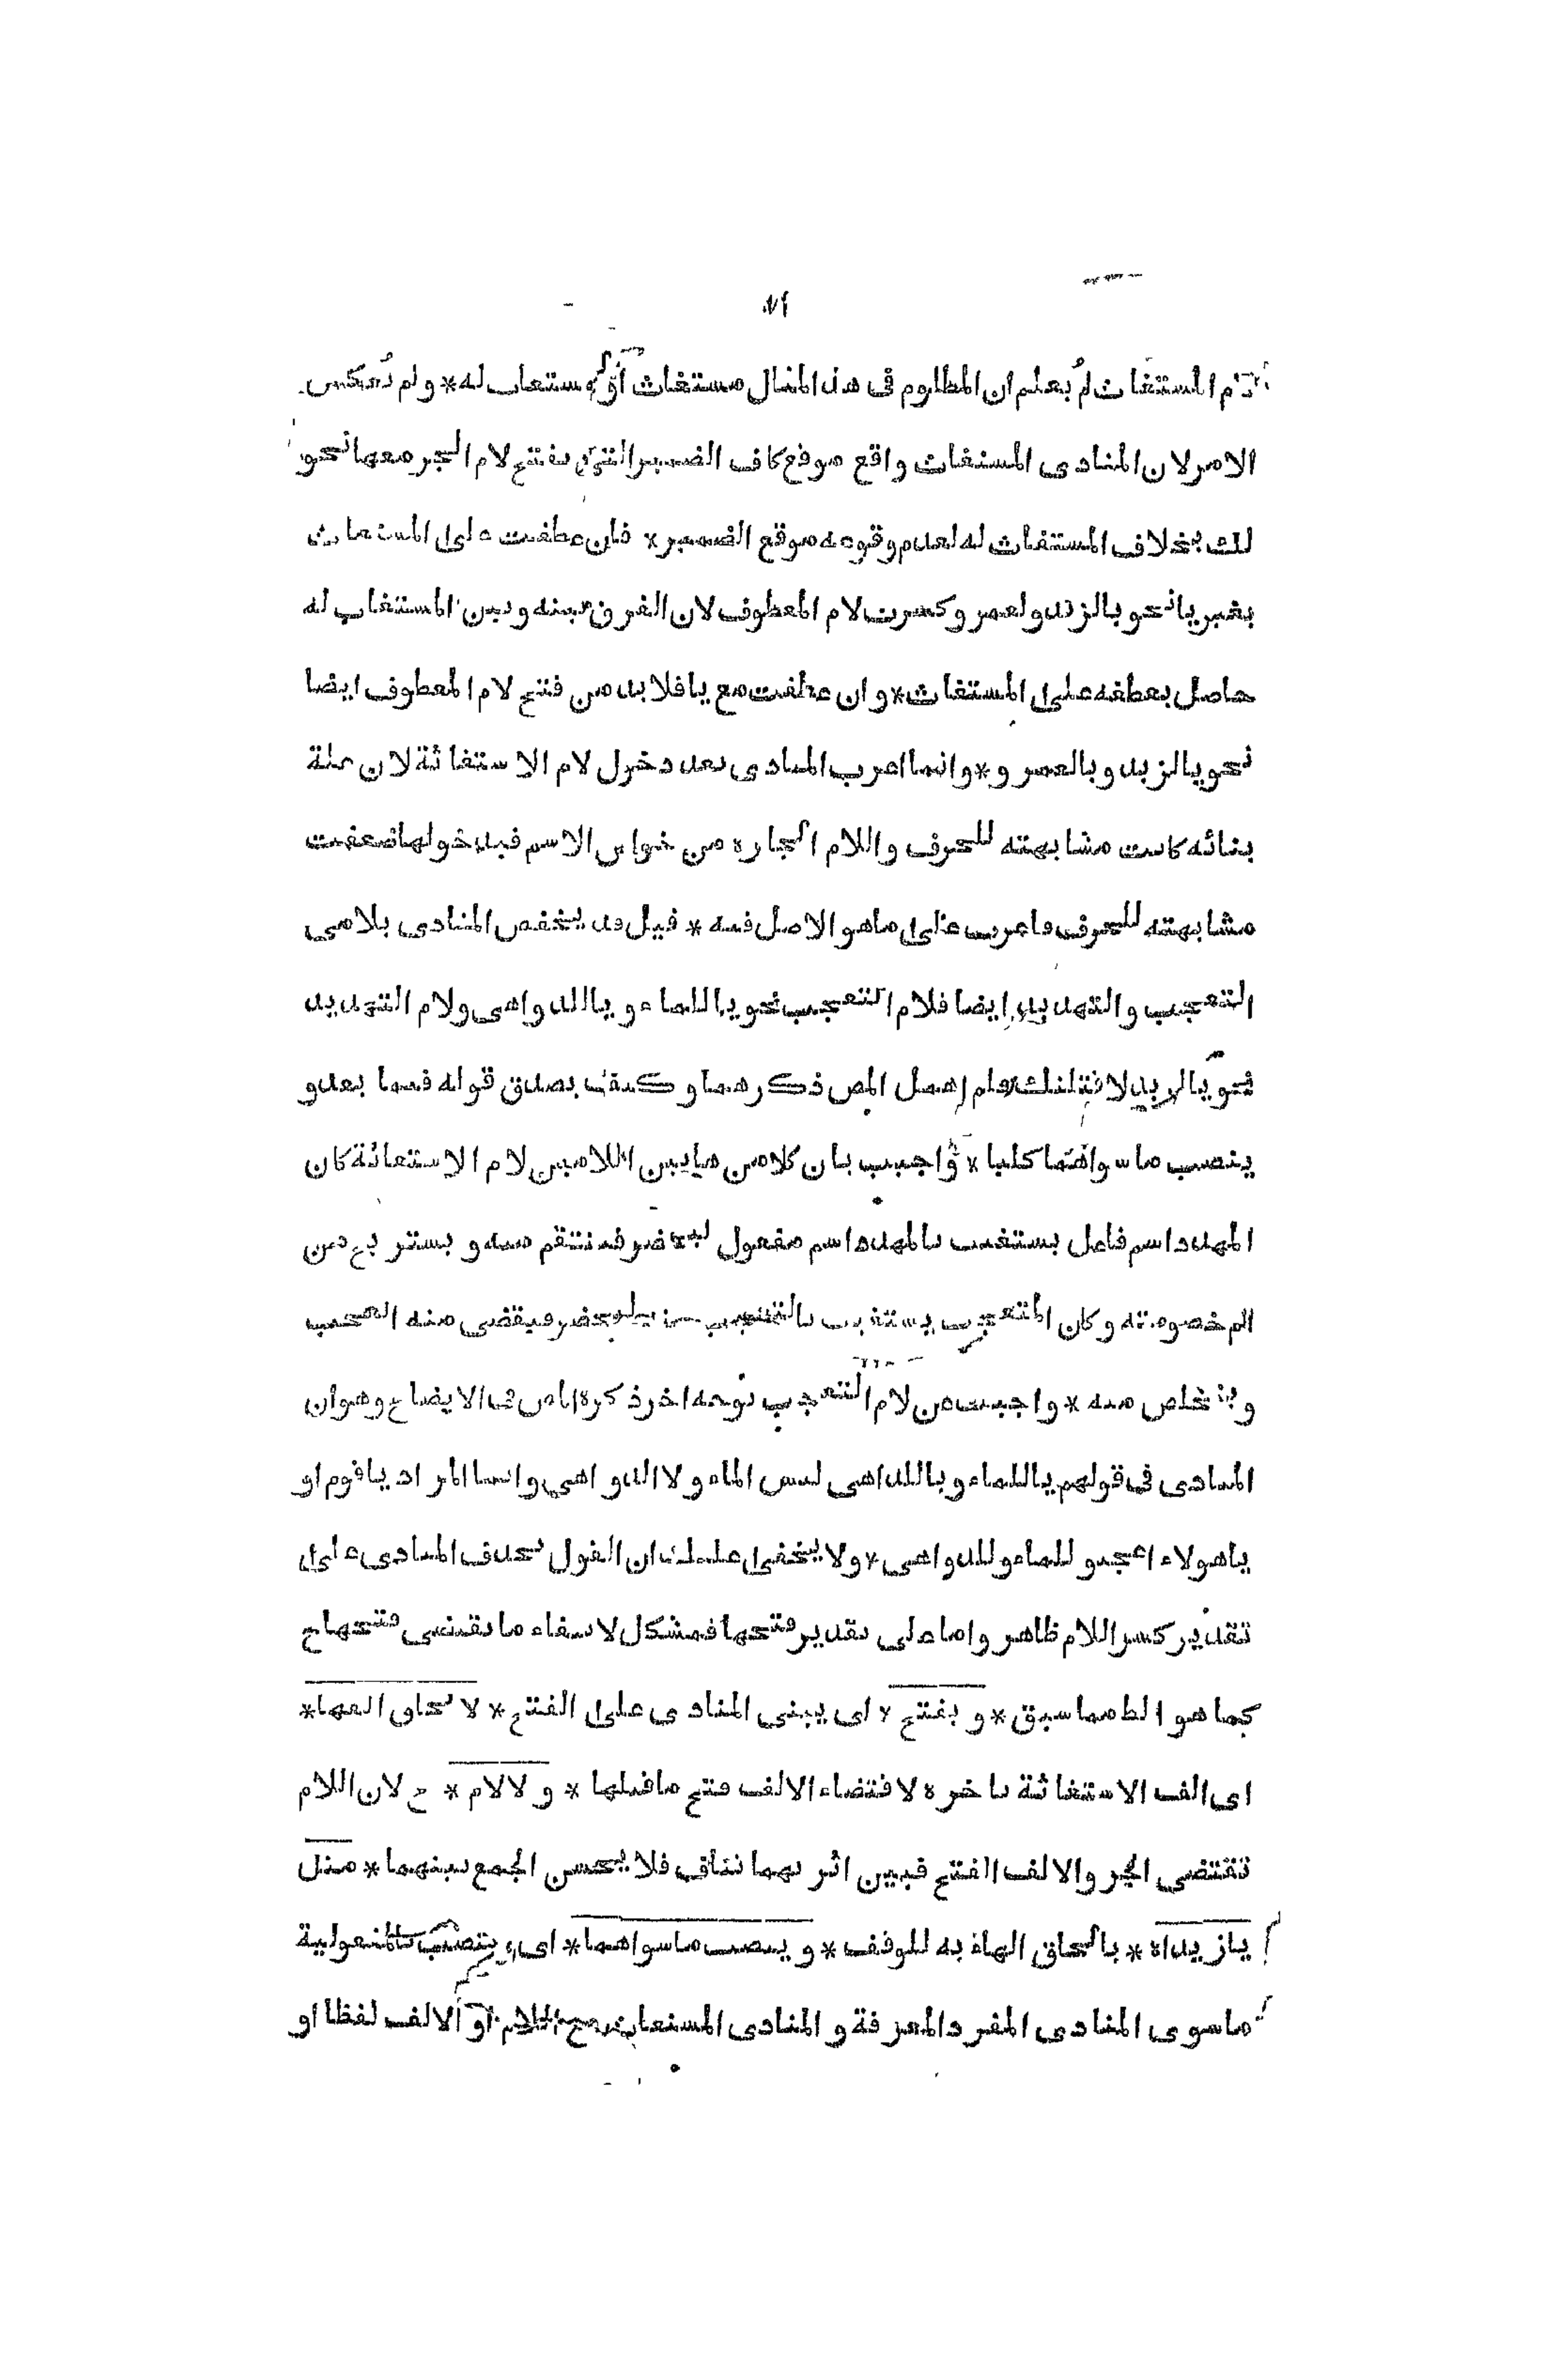 ٧٢
لام المستغاث لم يعلم ان المظلوم فى هذا المثال مستغاث او مستغاث له * ولم يعكس
الامر لان المنادى المستغاث واقع موقع كاف الضمير التى يفتح لام الجر معها نحو
لك بخلاف المستغاث له لعدم وقوعه موقع الضمير * فان عطفت على المستغاث
بغير يا نحو يا لزيد ولعمرو كسرت لام المعطوف لان الفرق بينه وبين المستغاث له
حاصل بعطفه على المستغاث * وان عطفت مع يا فلا بد من فتح لام المعطوف ايضا
نحو يا لزيد ويا لعمرو * وانما اعرب المنادى بعد دخول لام الاستغاثة لان علة
بنائه كانت مشابهته للحرف واللام الجاره من خواص الاسم فبدخولها ضعفت
مشابهته للحرف فاعرب على ما هو الاصل فيه * قيل قد يخفض المنادى بلامى
التعجب والتهديد ايضا فلام التعجب نحو يا للماء ويا للدواهى ولام التهديد
نحو يا لزيد لاقتلنك فلم اهمل المص ذكرهما وكيف يصدق قوله فيما بعد و
ينصب ما سواهما كليا * واجيب بان كلا من هاتين اللامين لام الاستغاثة كان
المهدد اسم فاعل يستغيث بالمهدد اسم مفعول ليحضر فينتقم منه ويستريح من
الم خصومته وكان المتعجب يستغيث بالمتعجب منه ليحضر فيقضى منه العجب
ويتخلص منه * واجيب عن لام التعجب بوجه اخر ذكره المص فى الايضاح وهو ان
المنادى فى قولهم يا للماء ويا للدواهى ليس الماء ولا الدواهى وانما المراد يا قوم او
يا هولاء اعجبو للماء وللدواهى * ولا يخفى عليك ان القول بحذف المنادى على
تقدير كسر اللام ظاهر واما على تقدير فتحها فمشكل لانتفاء ما يقتضى فتحها ح
كما هو الظ مما سبق * و يفتح * اى يبنى المنادى على الفتح * لالحاق الفها *
اى الف الاستغاثة باخره لاقتضاء الالف فتح ما قبلها * و لا لام * ح لان اللام
تقتضى الجر والالف الفتح فبين اثريهما تناف فلا يحسن الجمع بينهما * مثل
يا زيداه * بالحاق الهاء به للوقف * و ينصب ما سواهما * اى ينصب بالمفعولية
ما سوى المنادى المفرد المعرفة و المنادى المستغاث مع اللام او الالف لفظا او